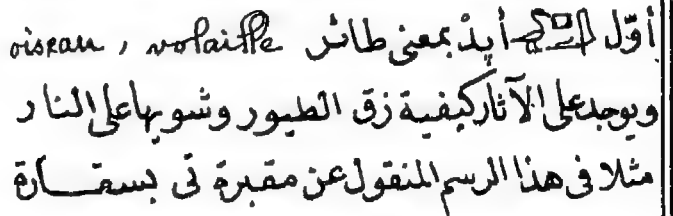 أوّل أبدْ بمعنى طائر oiseau, volaille
ويوجد على الآثار كيفية زق الطيور وشويها على النار
مثلا فى هذا الرسم المنقول عن مقبرة تى بسقارة